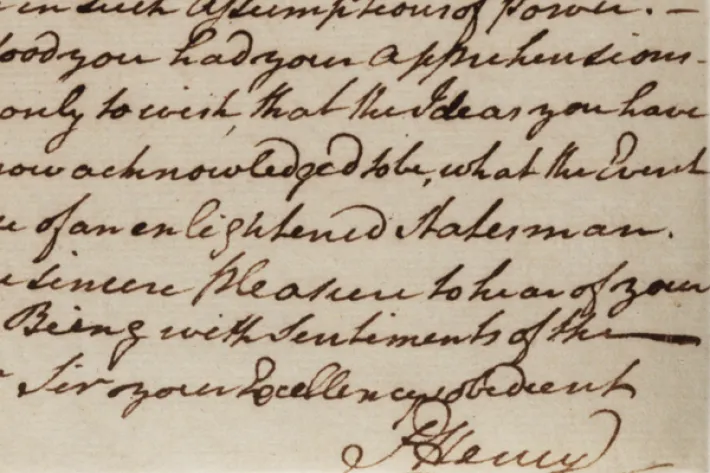 in such Assumptions of Power. –
you had your apprehensions –
only to wish, that the Ideas you have
now acknowledged to be, what the Event
of an enlightened Statesman.
sincere Pleasure to hear of your
Being with Sentiments of the
Sir your Excellency obedient
P Henry